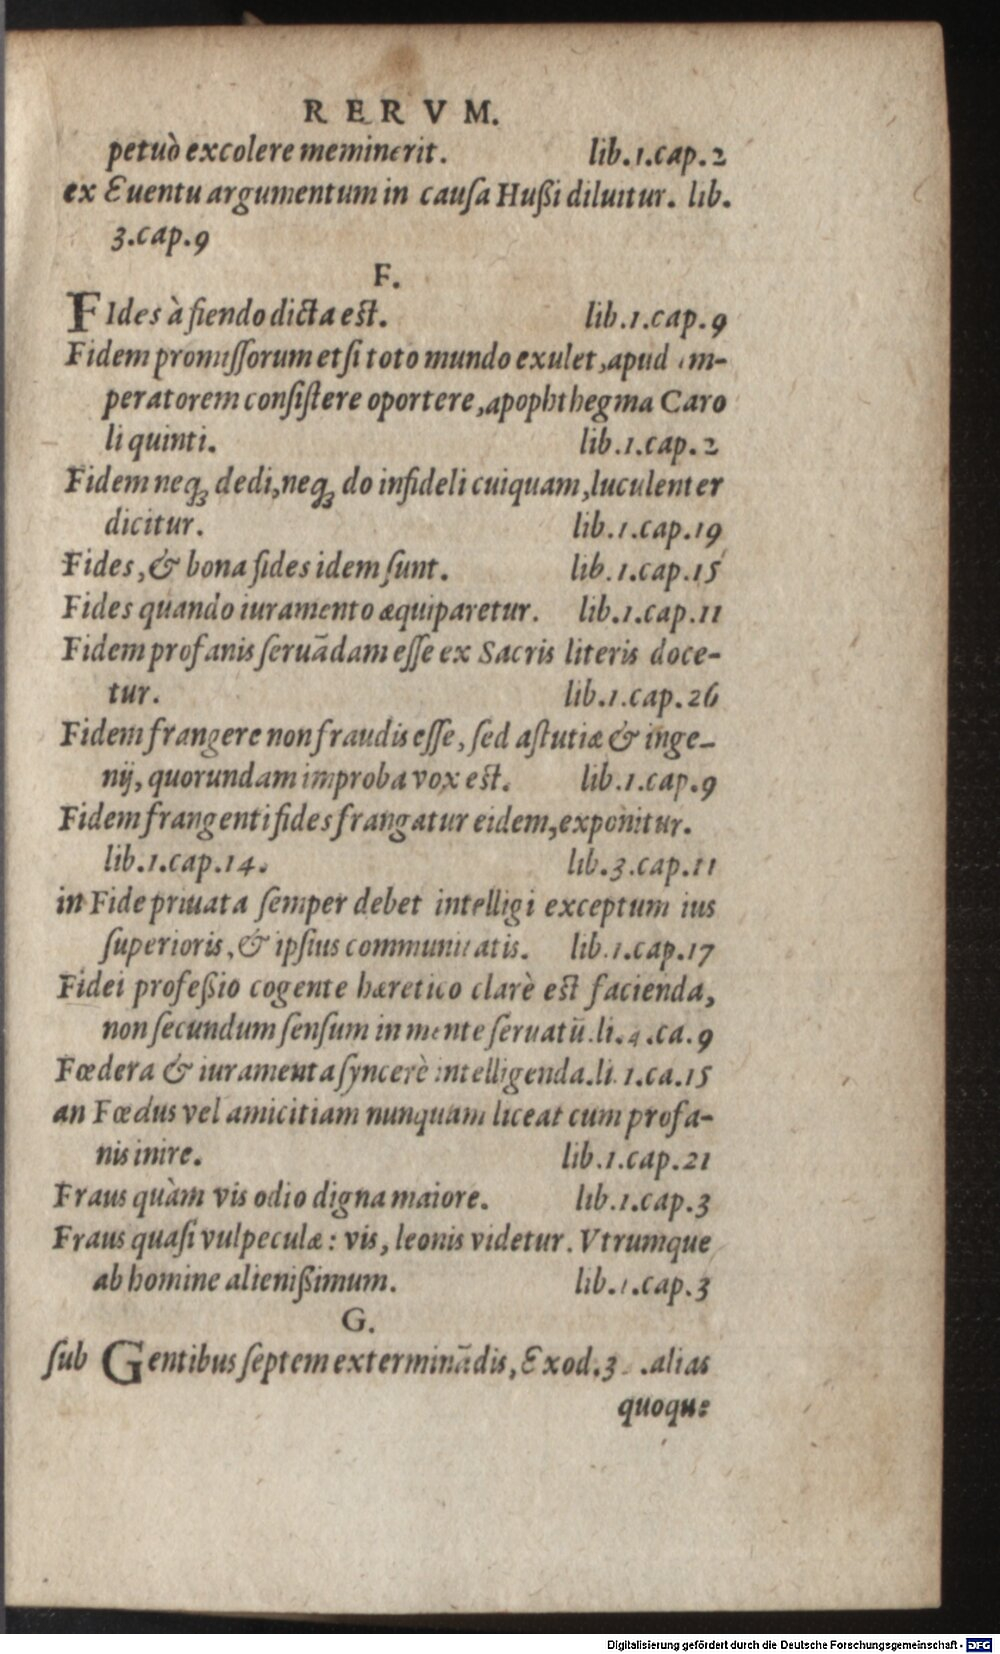 RERVM.
petuò excolere meminerit. lib.1.cap.2
ex Euentu argumentum in cauſa Hußi diluitur. lib.
3.cap.9
F.
FIdes à fiendo dicta est. lib.1.cap.9
Fidem promiſſorum etſi toto mundo exulet, apud im-
peratorem conſiſtere oportere, apophthegma Caro
li quinti. lib.1.cap.2
Fidem neq; dedi, neq; do infideli cuiquam, luculenter
dicitur. lib.1.cap.19
Fides, & bona fides idem ſunt. lib.1.cap.15
Fides quando iuramento æquiparetur. lib.1.cap.11
Fidem profanis ſeruãdam eſſe ex Sacris literis doce-
tur. lib.1.cap.26
Fidem frangere non fraudis eſſe, ſed aſtutiæ & inge-
nij, quorundam improba vox est. lib.1.cap.9
Fidem frangenti fides frangatur eidem, exponitur.
lib.1.cap.14. lib.3.cap.11
in Fide priuata ſemper debet intelligi exceptum ius
ſuperioris, & ipſius communitatis. lib.1.cap.17
Fidei profeßio cogente hæretico clarè est facienda,
non ſecundum ſenſum in mente ſeruatũ. li.4.ca.9
Fœdera & iuramenta ſyncerè intelligenda. li.1.ca.15
an Fœdus vel amicitiam nunquam liceat cum profa-
nis inire. lib.1.cap.21
Fraus quàm vis odio digna maiore. lib.1.cap.3
Fraus quaſi vulpeculæ: vis, leonis videtur. Vtrumque
ab homine alienißimum. lib.1.cap.3
G.
ſub Gentibus ſeptem exterminãdis, Exod.3 .alias
quoque
Digitalisierung gefördert durch die Deutsche Forschungsgemeinschaft - DFG